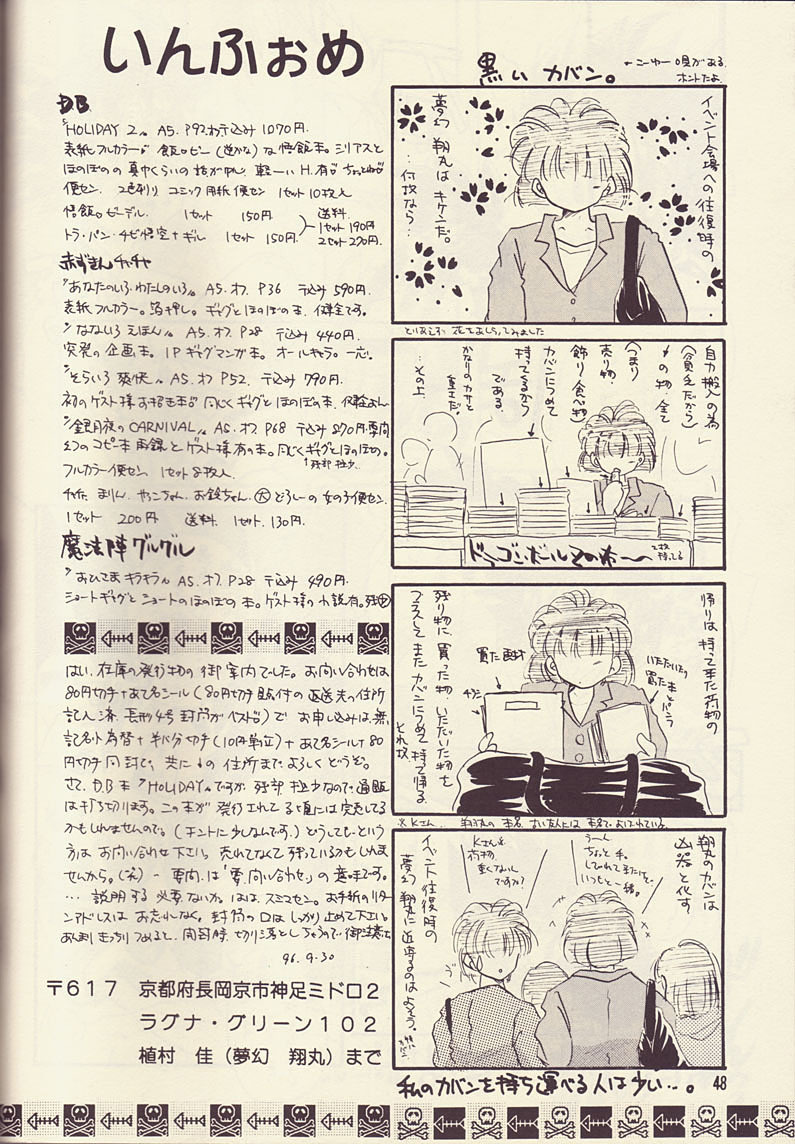 いんふぉめ
D.B
"HOLIDAY 2" A5. P92. 〒込み 1070円.
表紙フルカラー 飯ロビー(逆かな)な悟飯本。シリアスと
ほのぼのの真中くらいの話が中心。軽ーいH.有
便セン. 2色刷り コミック用紙便セン 1セット10枚入
悟飯。ビーデル. 1セット 150円. 送料.
トラ・パン・チビ悟空+ギル 1セット 150円. 1セット 190円
2セット270円.
赤ずきんチャチャ
"あなたのいろ わたしのいろ" A5. オフ. P36 〒込み 590円.
表紙フルカラー。箔押し。ギャグとほのぼの本. 健全です。
"なないろ えほん" A5. オフ. P28 〒込み 440円.
突発の企画本。1Pギャグマンガ本。オールキャラの一応。
"そらいろ 爽快" A5. オフ P52. 〒込み 790円.
初のゲスト様お招き本 同じくギャグとほのぼの本.
"銀月夜のCARNIVAL" A5. オフ. P68 〒込み 870円. 要向
幻のコピー本 再録とゲスト様有の本。同じくギャグとほのぼの。
残部極少
フルカラー便セン. 1セット8枚入.
チャチャ. まりん. やっこちゃん. お鈴ちゃん. 大 どろしーの女の子便セン.
1セット 200円 送料. 1セット. 130円.
魔法陣グルグル
"おひさま キラキラ" A5. オフ. P28 〒込み 490円.
ショートギャグとショートのほのぼの本。ゲスト様の小説有。残少
はい. 在庫の発行物の御案内でした。お問い合わせは
80円切手+あて名シール(80円切手貼付の返送先の住所
記入済 長形4号封筒がベスト)で お申し込みは. 無
記名小為替+半ぱ分切手(10円単位)+あて名シール+80
円切手同封で、共に↓の住所まで. よろしくどうぞ。
さて. D.B本"HOLIDAY"ですが 残部極少なので、通販
は打ち切ります。この本が発行されてる頃には完売してる
かもしれませんので。(ホントに少ないんです.)どうしてもという
方は お問い合わせ下さい。売れてなくて残っているかもしれま
せんから。(笑) - 要向.は「要.問い合わせ」の意味です。
…説明する必要ないか。ははは. スミマセン。お手紙のリター
ンアドレスは お忘れなく。封筒の口は しっかり止めて下さい。
あんまり きっちりつめると. 開封時. 切り落としちゃうので. 御注意を
96. 9. 30
〒617 京都府長岡京市神足ミドロ2
ラグナ・グリーン102
植村 佳(夢幻 翔丸)まで
黒いカバン。
←こーゆー唄がある.
ホントだよ.
イベント会場への往復時の
夢幻 翔丸は キケンだ。
…何故なら…
とりあえず 花であしらってみました
自力搬入の為
(貧乏だから)
↓の物 全て
(つまり
売り物
飾り 食べ物)
カバンにつめて
持ってくるから
である.
かなりのカサと
重さだ。
…その上.
ドラゴンボールの本〜
帰りは 持って来た荷物の
残り物に、買った物 いただいた物を
プラスして またカバンにつめて 持って帰る.
それ故
買った画材
チラシ
いただいたり
買った本と
パンフ
※Kさん… 翔丸の本名. 古い友人には 本名で よばれている.
翔丸のカバンは
凶器と化す.
うーん
ちょっと 手.
しびれてきたけど.
いつもと一緒。
Kさん
荷物.
重くないん
ですか?
イベント往復時の
夢幻 翔丸に 近寄るのはよそう。
私のカバンを持ち運べる人は少い…。
48